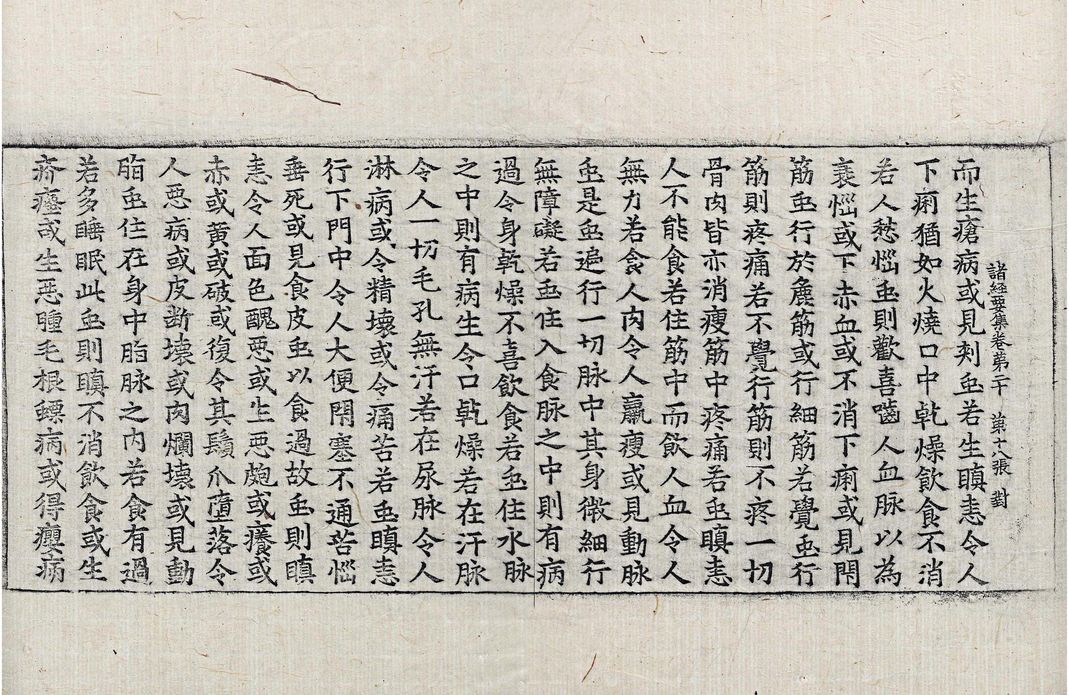 而生瘡病或見刾䖝若生瞋恚令人
諸經要集卷第二十　第十八張　對
下痢猶如火燒口中乾燥飲食不消
若人愁惱䖝則歡喜嚙人血脉以為
衰惱或下赤血或不消下痢或見閇
筋䖝行於麁筋或行細筋若覺䖝行
筋則疼痛若不覺行筋則不疼一切
骨肉皆亦消瘦筋中疼痛若䖝瞋恚
人不能食若住筋中而飲人血令人
無力若食人肉令人羸瘦或見動脉
䖝是䖝遍行一切脉中其身微細行
無障礙若䖝住入食脉之中則有病
過令身乾燥不喜飲食若䖝住水脉
之中則有病生令口乾燥若在汗脉
令人一切毛孔無汗若在尿脉令人
淋病或令精壞或令痛苦若䖝瞋恚
行下門中令人大便閇塞不通苦惱
垂死或見食皮䖝以食過故䖝則瞋
恚令人面色醜惡或生惡皰或癢或
赤或黃或破或復令其鬚爪墮落令
人惡病或皮断壞或肉爛壞或見動
脂䖝住在身中脂脉之內若食有過
若多睡眠此䖝則瞋不消飲食或生
疥癌或生惡腫毛根螵病或得癭病